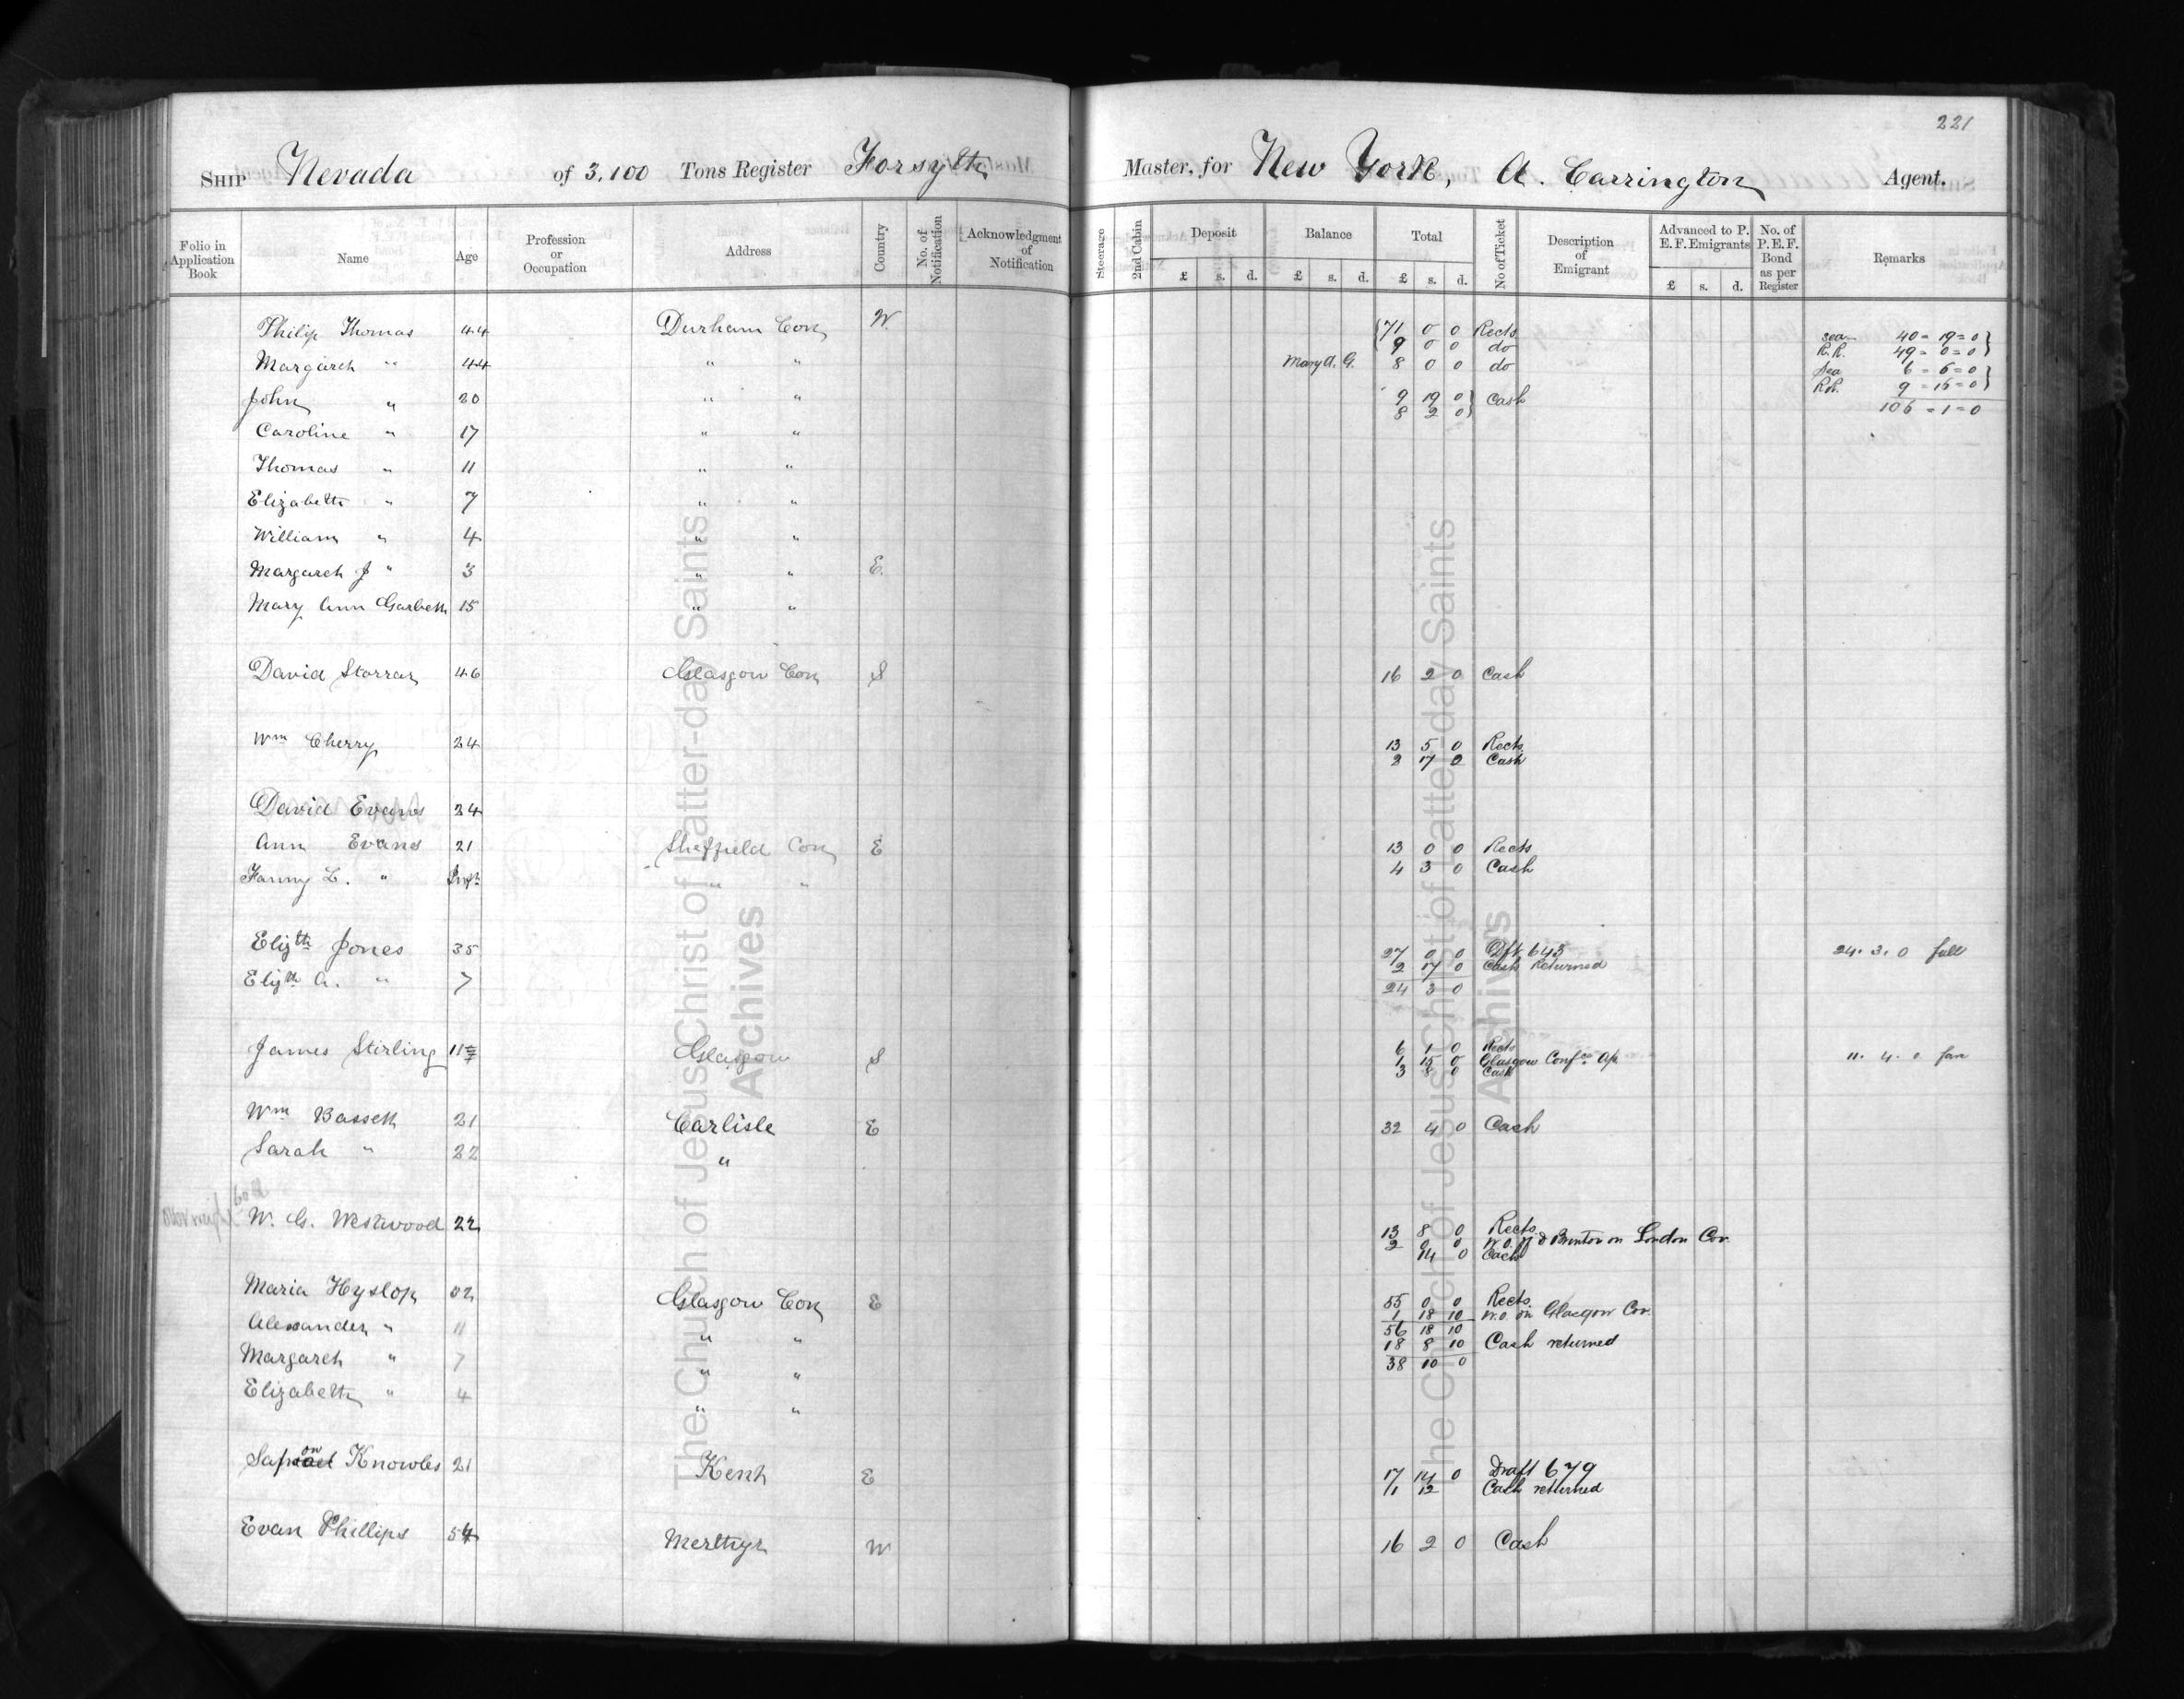 221
SHIP Nevada of 3.100 Tons Register Forsyth Master, for New York, A. Carrington Agent.
Folio in Application Book Name Age Profession or Occupation Address Country No. of Notification Acknowledgment of Notification Steerage 2nd Cabin Deposit Balance Total No of Ticket Description of Emigrant Advanced to P. E. F. Emigrants No. of P.E.F. Bond as per Register Remarks
£ s. d. £ s. d. £ s. d. £ s. d.
Philip Thomas 44 Durham Con W. 71 0 0 Rects sea 40=19=0
9 0 0 do R.R. 49=0=0
Margaret " 44 " " Mary A. G. 8 0 0 do Sea 6=6=0
R.R. 9=16=0
John " 20 " " 9 19 0 Cash 106=1=0
8 2 0
Caroline " 17 " "
Thomas " 11 " "
Elizabeth " 7 " "
William " 4 " "
Margaret J " 3 " " E.
Mary Ann Garbett 15 " "
David Storrar 46 Glasgow Con S 16 2 0 Cash
Wm Cherry 24 13 5 0 Rects
2 17 0 Cash
David Evans 24
Ann Evans 21 Sheffield Con E 13 0 0 Rects
Fanny L. " Inft " " 4 3 0 Cash
Elizth Jones 35 27 0 0 Dft 643 24. 3. 0 full
2 17 0 Cash Returned
Elizth A. " 7 24 3 0
James Stirling 11 Glasgow S 6 1 0 Rects
1 15 0 Glasgow Confce 11. 4. 0
3 8 0 Cash
Wm Bassett 21 Carlisle E 32 4 0 Cash
Sarah " 22 "
W. G. Westwood 22 13 8 0 Rects
2 0 0 Brenton on London Con.
14 0 Cash
Maria Hyslop Glasgow Con E 55 0 0 Rects
1 18 10 W.O. on Glasgow Con.
Alexander " 11 " " 56 18 10
18 8 10 Cash returned
Margaret " 7 " " 38 10 0
Elizabeth " 4 " "
on
Knowles 21 Kent E 17 14 0 Draft 679
1 12 Cash returned
Evan Phillips 54 Merthyr W 16 2 0 Cash
The Church of Jesus Christ of Latter-day Saints
Archives
The Church of Jesus Christ of Latter-day Saints
Archives